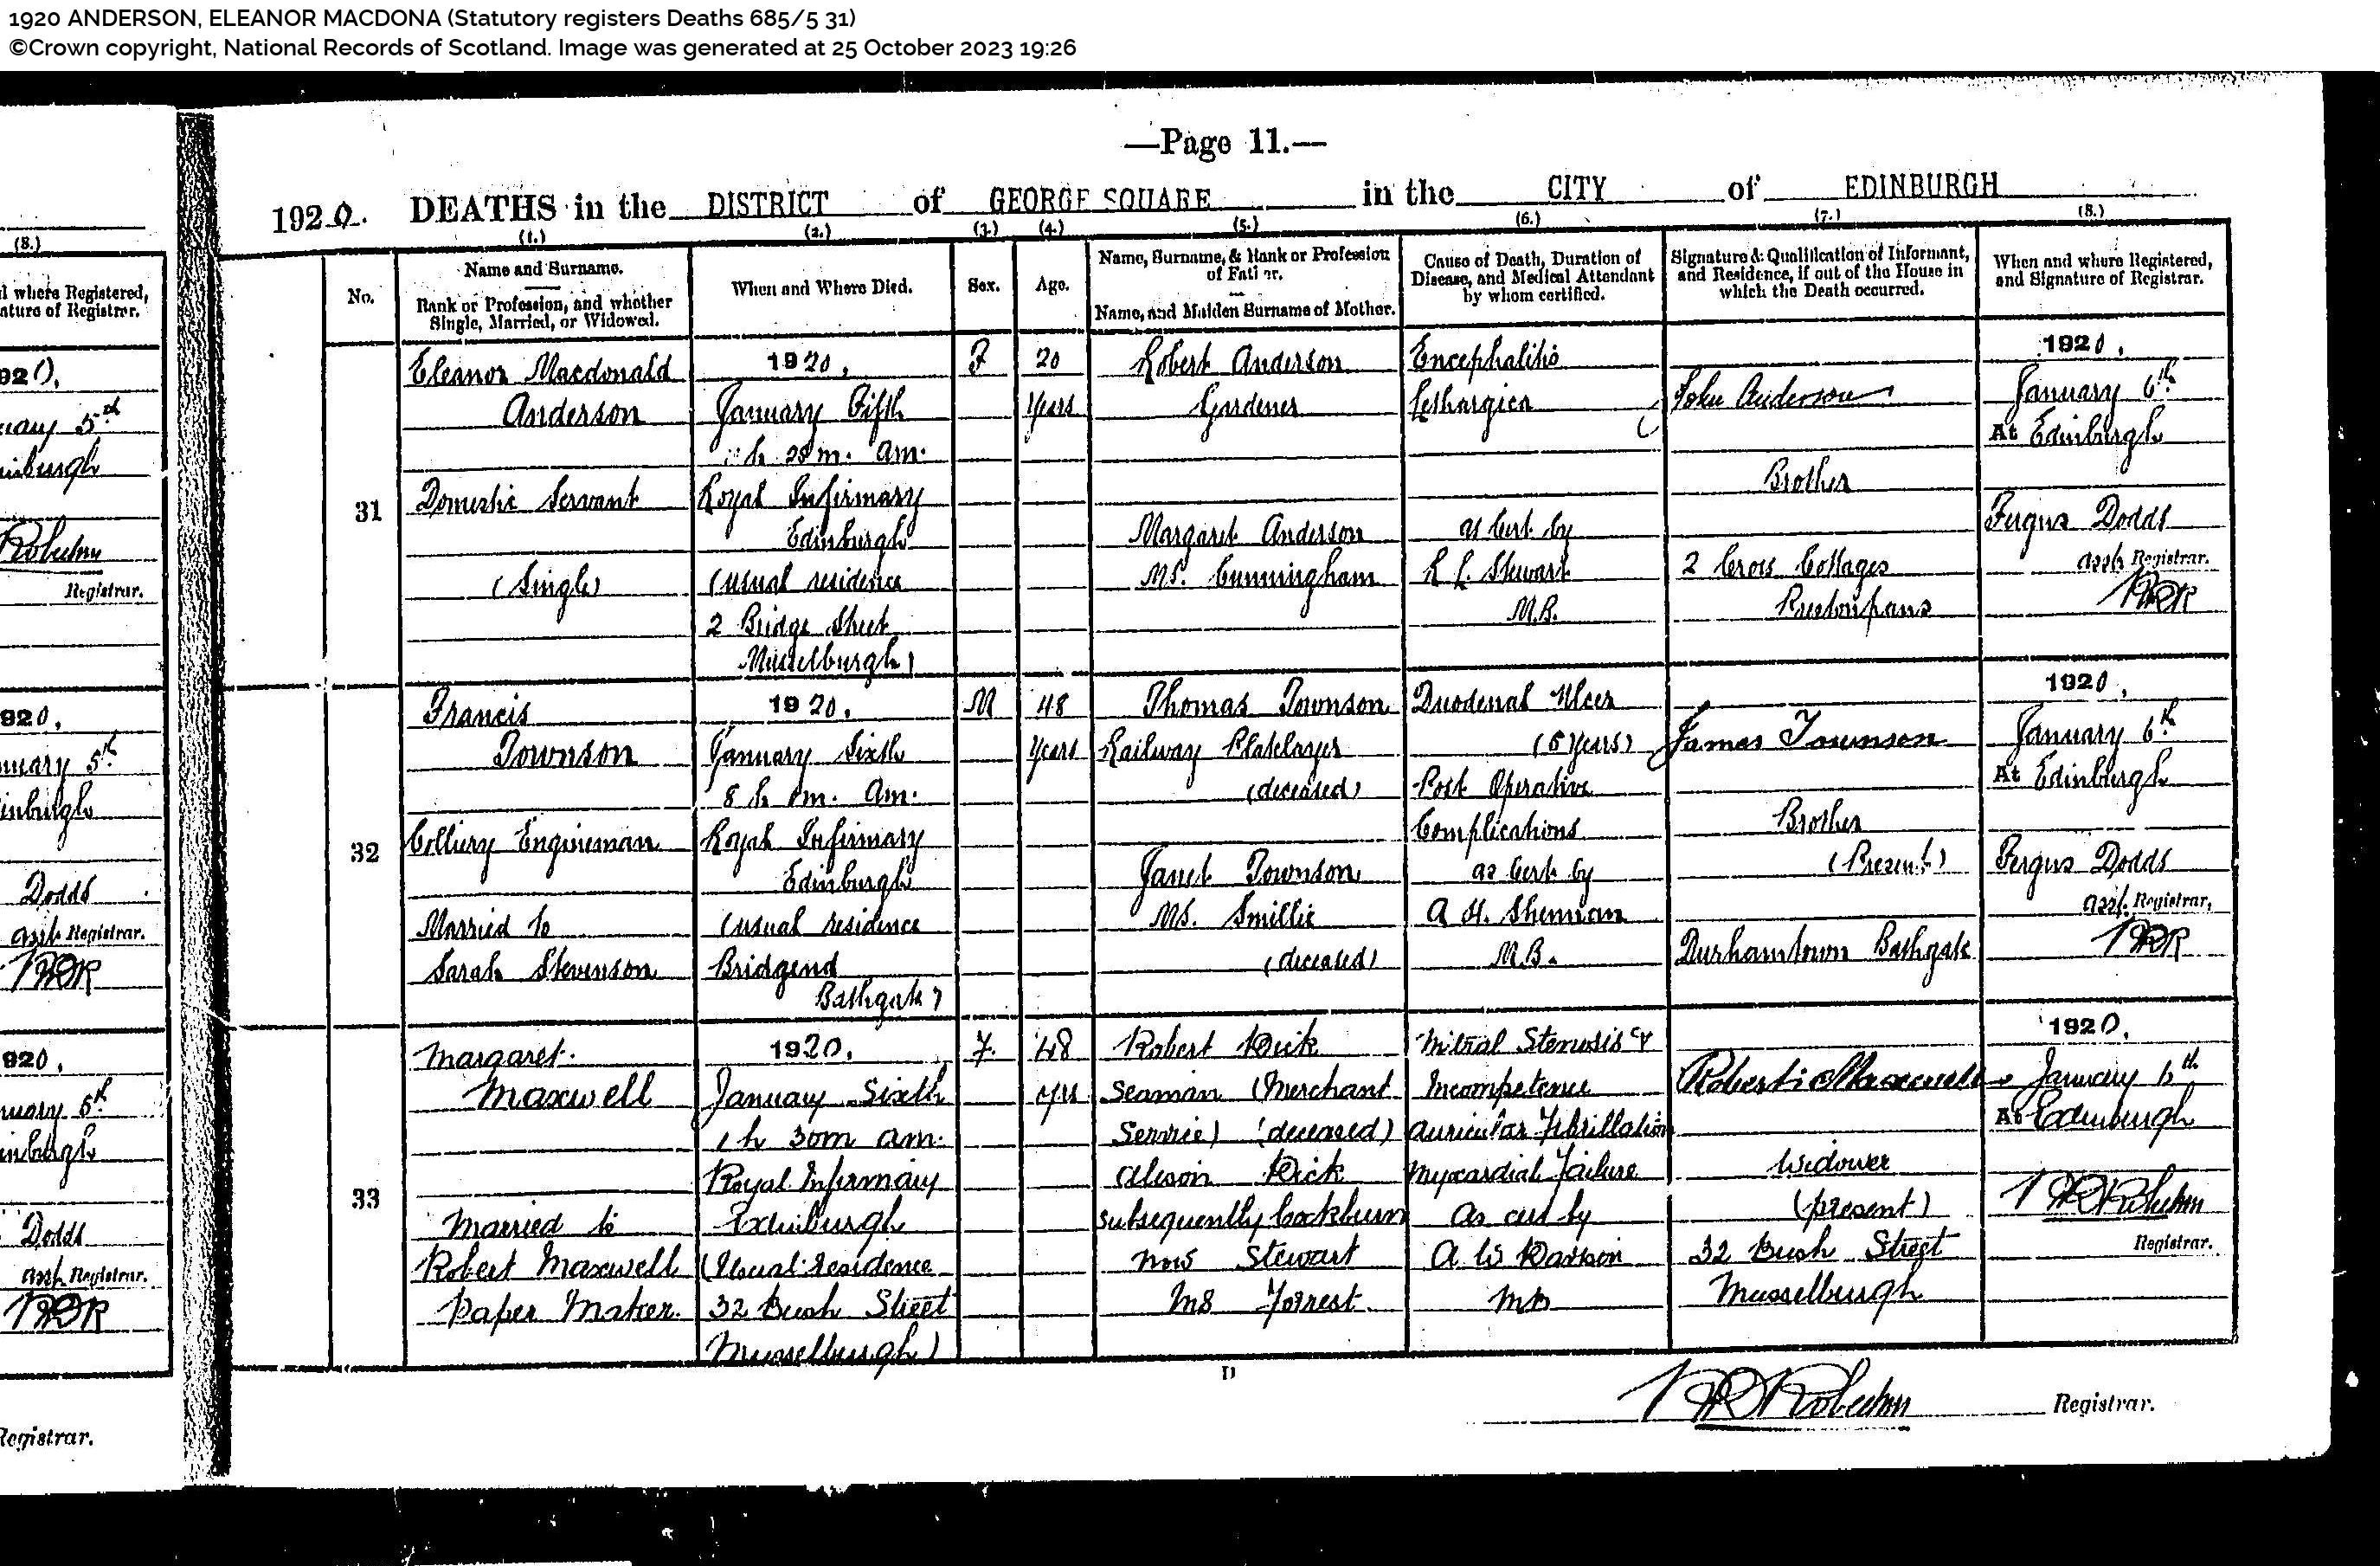 1920 ANDERSON, ELEANOR MACDONA (Statutory registers Deaths 685/5 31)
©Crown copyright, National Records of Scotland. Image was generated at 25 October 2023 19:26
—Page 11.—
1920. DEATHS in the DISTRICT of GEORGE SQUARE in the CITY of EDINBURGH
(1.) (2.) (3.) (4.) (5.) (6.) (7.) (8.)
No.
Name and Surname.
Rank or Profession, and whether
Single, Married, or Widowed.
When and Where Died.
Sex.
Age.
Name, Surname, & Rank or Profession
of Father.
Name, and Maiden Surname of Mother.
Cause of Death, Duration of
Disease, and Medical Attendant
by whom certified.
Signature & Qualification of Informant,
and Residence, if out of the House in
which the Death occurred.
When and where Registered,
and Signature of Registrar.
31
Eleanor Macdonald
Anderson
Domestic Servant
(Single)
1920.
January Fifth
h m. am.
Royal Infirmary
Edinburgh
(usual residence
2 Bridge Street
Musselburgh)
F
20
years
Robert Anderson
Gardener
Margaret Anderson
MS. Cunningham
Encephalitis
Lethargica
as Cert by
Stewart
M.B.
John Anderson
Brother
2 Cross Cottages
Prestonpans
1920.
January 6th
At Edinburgh
Fergus Dodds
asst. Registrar.
32
Francis
Townson
Colliery Engineman
Married to
Sarah Stevenson
1920.
January Sixth
8 h m. am.
Royal Infirmary
Edinburgh
(usual residence
Bridgend
Bathgate)
M
48
years
Thomas Townson
Railway Platelayer
(deceased)
Janet Townson
MS. Smillie
(deceased)
Duodenal Ulcer
(5 years)
Post Operative
Complications
as Cert by
A H. Sherman
M.B.
James Townson
Brother
(Present)
Durhamtown Bathgate
1920.
January 6th
At Edinburgh
Fergus Dodds
asst. Registrar.
33
Margaret
Maxwell
Married to
Robert Maxwell
Paper Maker
1920.
January Sixth
1 h 30m am.
Royal Infirmary
Edinburgh
(Usual Residence
32 Bush Street
Musselburgh)
F.
48
yrs
Robert Dick
Seaman (Merchant
Service) (deceased)
Alison Dick
subsequently Cockburn
now Stewart
MS Forrest
Mitral Stenosis &
Incompetence
Auricular Fibrillation
Myocardial Failure
As cert by
A W
MB
Robert Maxwell
Widower
(present)
32 Bush Street
Musselburgh
1920.
January 6th
At Edinburgh
Robertson
Registrar.
D
Robertson Registrar.